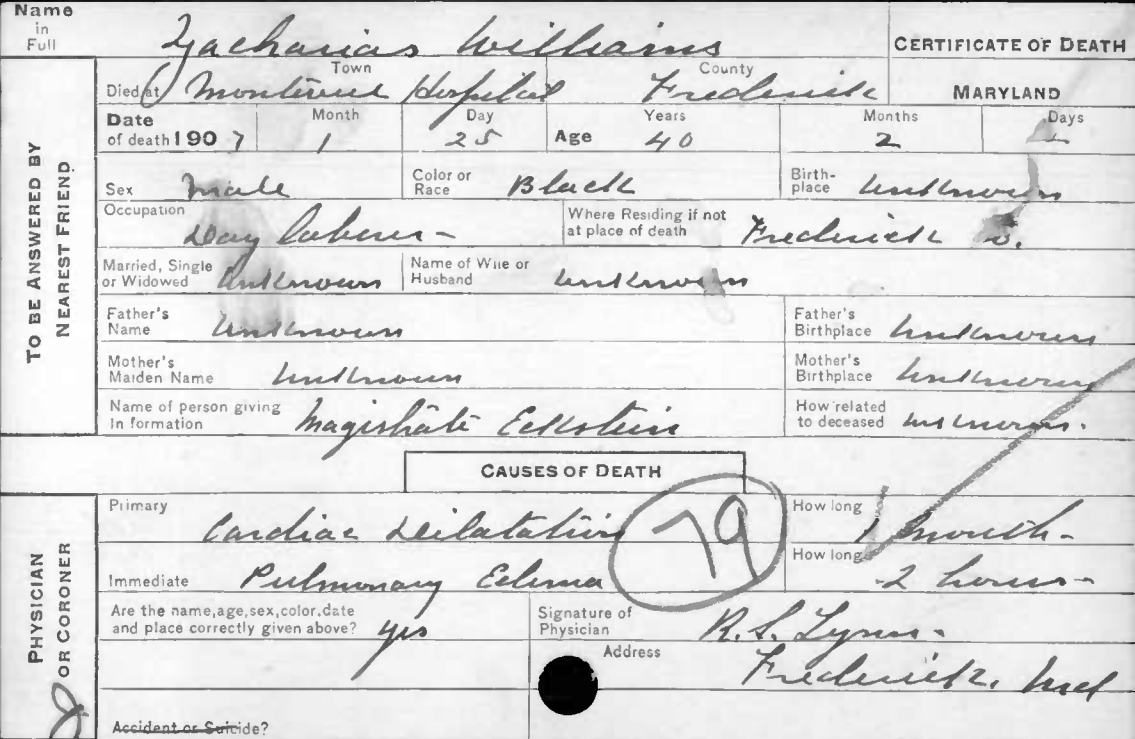 Name in Full Zacharias Williams CERTIFICATE OF DEATH
Town County
Died at Montevue Hospital Frederick MARYLAND
Date of death 1907 Month 1 Day 25 Age Years 40 Months 2 Days
Sex Male Color or Race Black Birth-place Unknown
Occupation Day laborer - Where Residing if not at place of death Frederick
Married, Single or Widowed Unknown Name of Wife or Husband Unknown
Father's Name Unknown Father's Birthplace Unknown
Mother's Maiden Name Unknown Mother's Birthplace Unknown
Name of person giving In formation Magistrate Eckstein How related to deceased Unknown.
TO BE ANSWERED BY NEAREST FRIEND
CAUSES OF DEATH
Primary Cardiac Dilatation 79 How long 1 month -
Immediate Pulmonary Edema How long - 2 hours -
Are the name,age,sex,color,date and place correctly given above? yes Signature of Physician R.S. Lynn -
Address Frederick, Md
Accident or Suicide?
PHYSICIAN OR CORONER